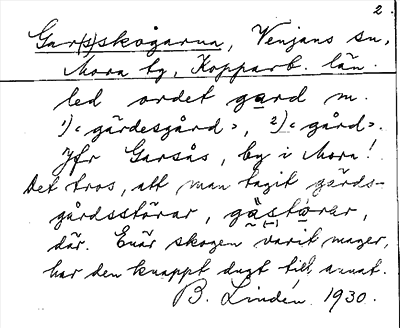 2.
Gar(s)skogarna, Venjans sn,
Mora by, Kopparb. län.
led ordet gard m.
1) ‹gärdesgård›, 2) ‹gård›.
Jfr Garsås, by i Mora!
Det tros, att man tagit gärds-
gårdsstörar, gästörar,
där. Enär skogen varit mager,
har den knappt dugt till annat.
B. Lindén 1930.